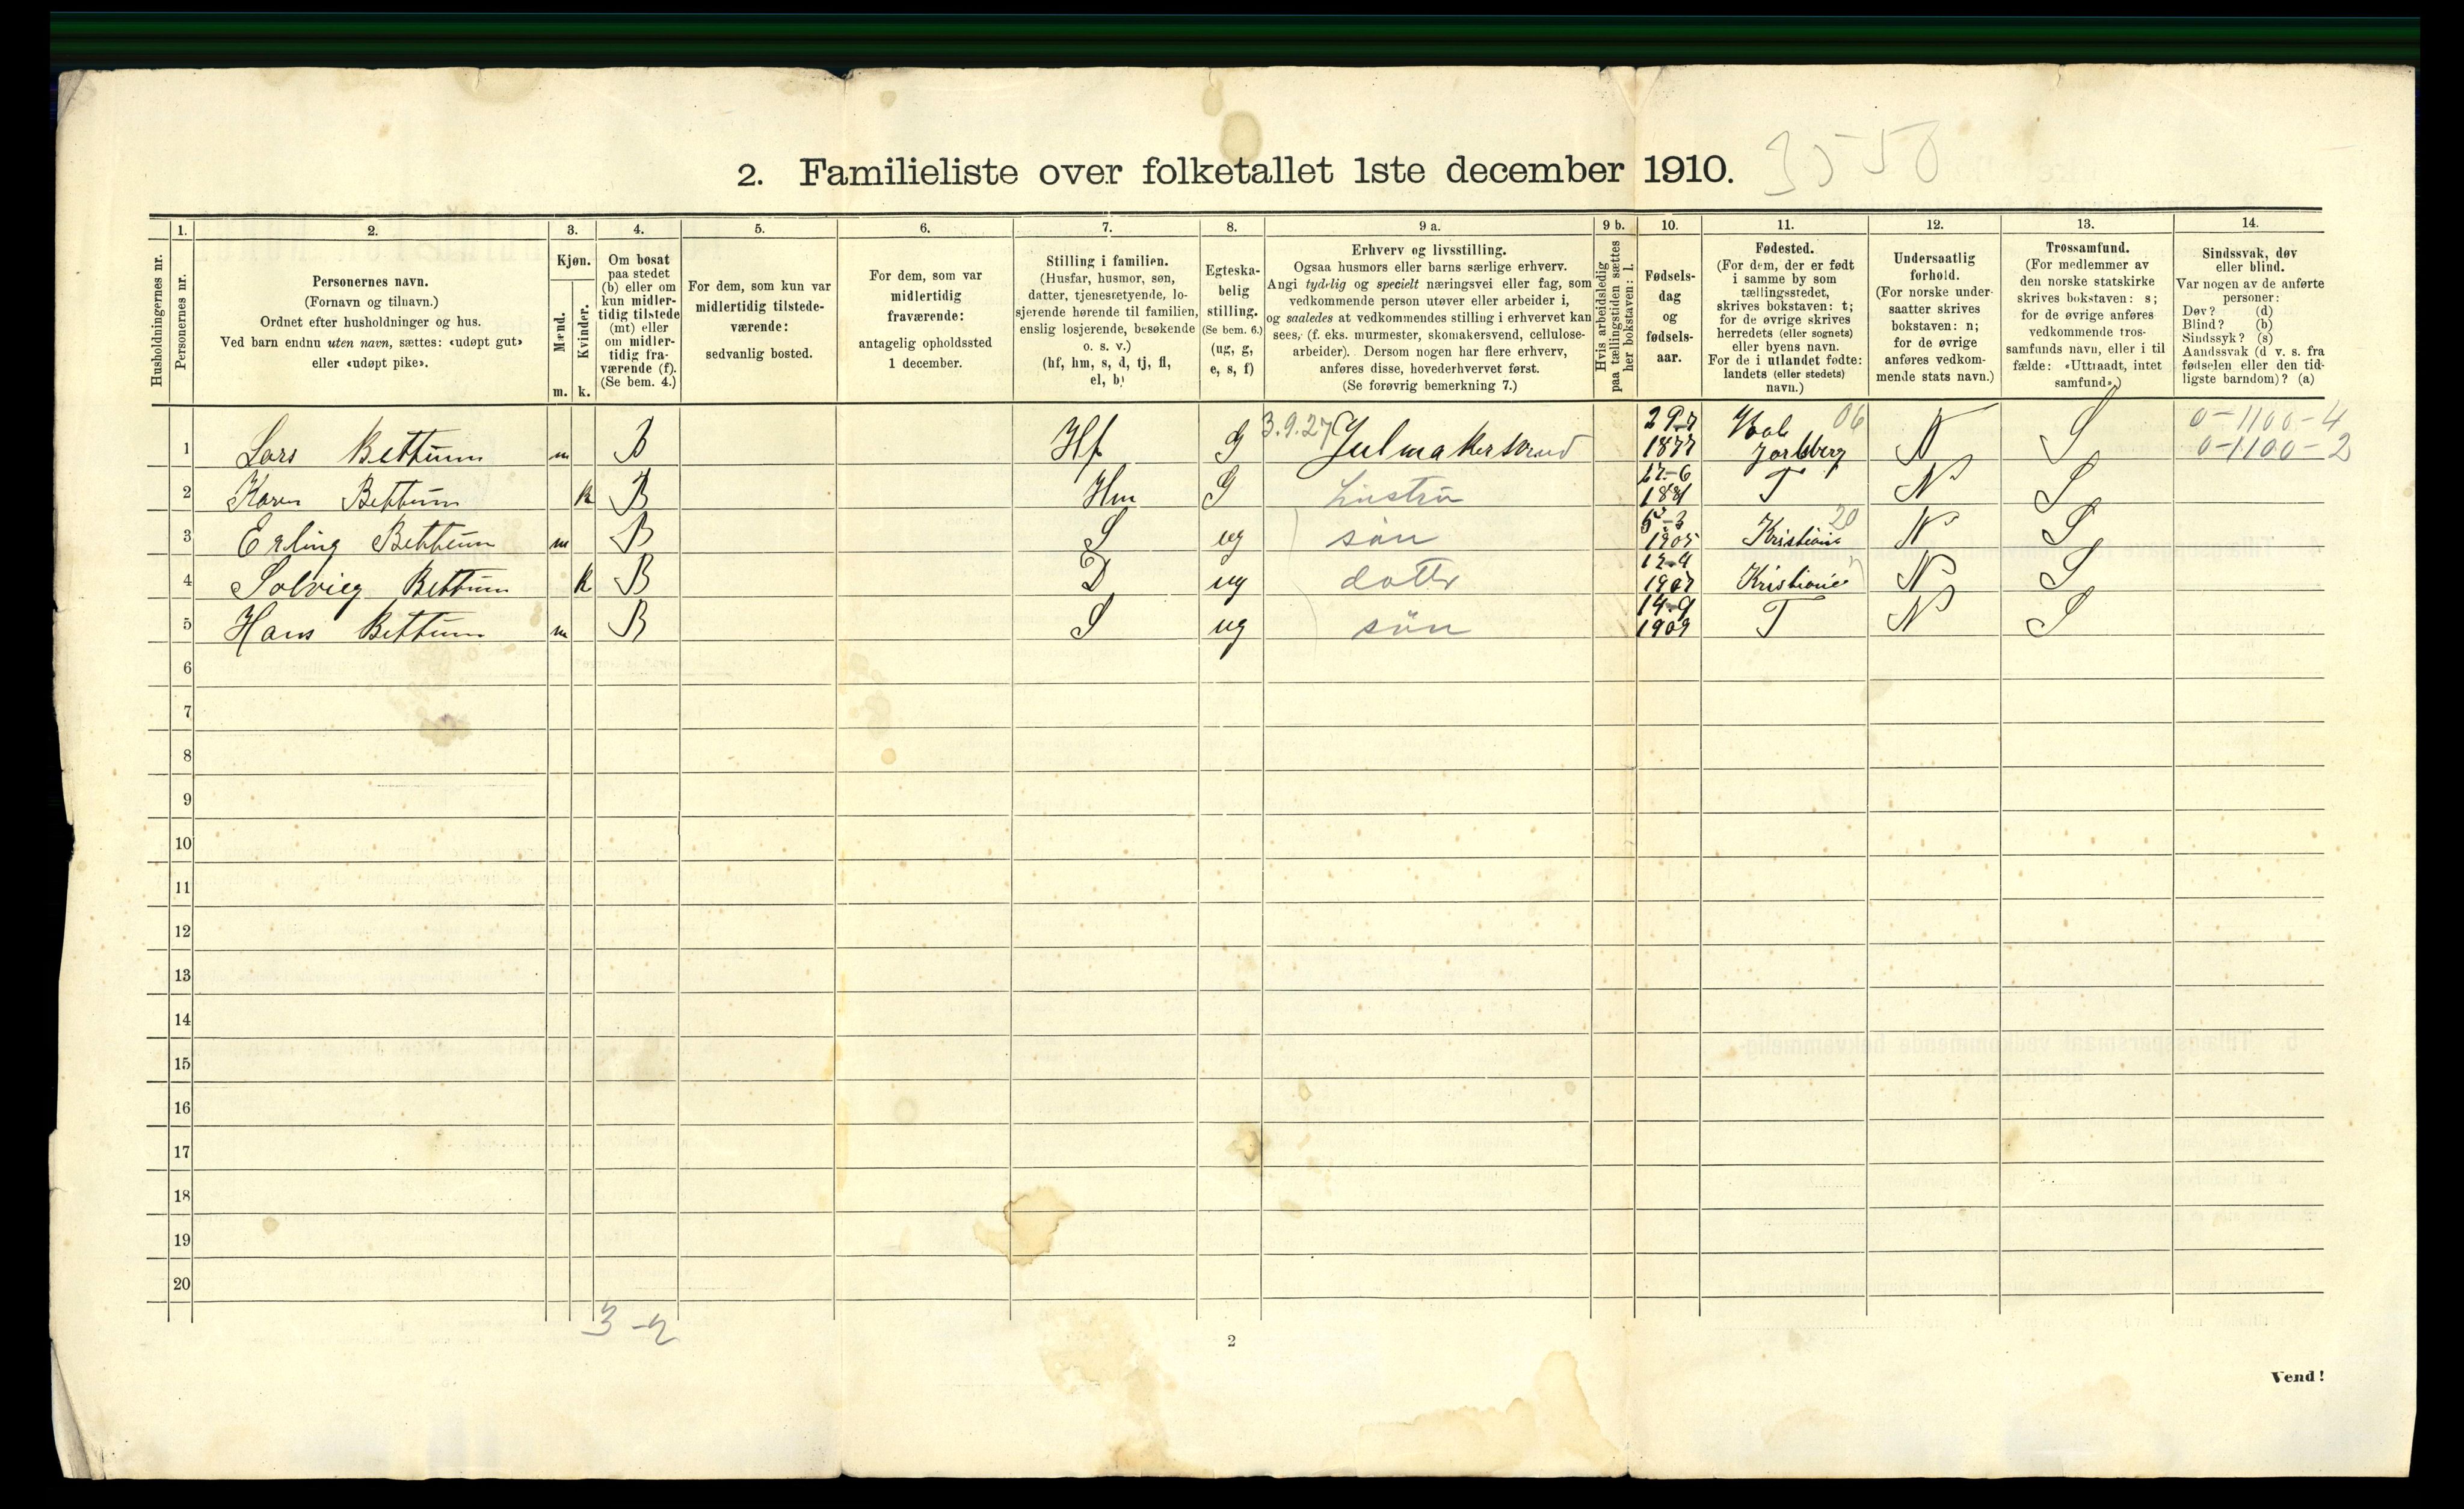 2. Familieliste over folketallet 1ste december 1910.
Husholdningernes nr.
1.
Personernes nr.
2.
Personernes navn.
(Fornavn og tilnavn.)
Ordnet efter husholdninger og hus.
Ved barn endnu uten navn, sættes: «udøpt gut»
eller «udøpt pike».
3.
Kjøn.
Mænd.
m.
Kvinder.
k.
4.
Om bosat
paa stedet
(b) eller om
kun midler-
tidig tilstede
(mt) eller
om midler-
tidig fra-
værende (f).
(Se bem. 4.)
5.
For dem, som kun var
midlertidig tilstede-
værende:
sedvanlig bosted.
6.
For dem, som var
midlertidig
fraværende:
antagelig opholdssted
1 december.
7.
Stilling i familien.
(Husfar, husmor, søn,
datter, tjenestetyende, lo-
sjerende hørende til familien,
enslig losjerende, besøkende
o. s. v.)
(hf, hm, s, d, tj, fl,
el, b)
8.
Egteska-
belig
stilling.
(Se bem. 6.)
(ug, g,
e, s, f)
9 a.
Erhverv og livsstilling.
Ogsaa husmors eller barns særlige erhverv.
Angi tydelig og specielt næringsvei eller fag, som
vedkommende person utøver eller arbeider i,
og saaledes at vedkommendes stilling i erhvervet kan
sees, (f. eks. murmester, skomakersvend, cellulose-
arbeider). Dersom nogen har flere erhverv,
anføres disse, hovederhvervet først.
(Se forøvrig bemerkning 7.)
9 b.
Hvis arbeidsledig
paa tællingstiden sættes
her bokstaven: l.
10.
Fødsels-
dag
og
fødsels-
aar.
11.
Fødested.
(For dem, der er født
i samme by som
tællingsstedet,
skrives bokstaven: t;
for de øvrige skrives
herredets (eller sognets)
eller byens navn.
For de i utlandet fødte:
landets (eller stedets)
navn.)
12.
Undersaatlig
forhold.
(For norske under-
saatter skrives
bokstaven: n;
for de øvrige
anføres vedkom-
mende stats navn.)
13.
Trossamfund.
(For medlemmer av
den norske statskirke
skrives bokstaven: s;
for de øvrige anføres
vedkommende tros-
samfunds navn, eller i til
fælde: «Uttraadt, intet
samfund».)
14.
Sindssvak, døv
eller blind.
Var nogen av de anførte
personer:
Døv? (d)
Blind? (b)
Sindssyk? (s)
Aandssvak (d v. s. fra
fødselen eller den tid-
ligste barndom)? (a)
1 Lars Bettum m B Hf G 3.9.27 1877 06 Jarlsberg N S 0-1100-4
0-1100-2
2 Karen Bettum k B Hm G hustru 1881 T N S
3 Erling Bettum m B S ug søn 5-3 1905 Kristiania 20 N S
4 Solvieg Bettum k B D ug 1907 N S
5 Hans Bettum m B S ug søn 14-9 1909 T N S
6
7
8
9
10
11
12
13
14
15
16
17
18
19
20
3-2
2
Vend!